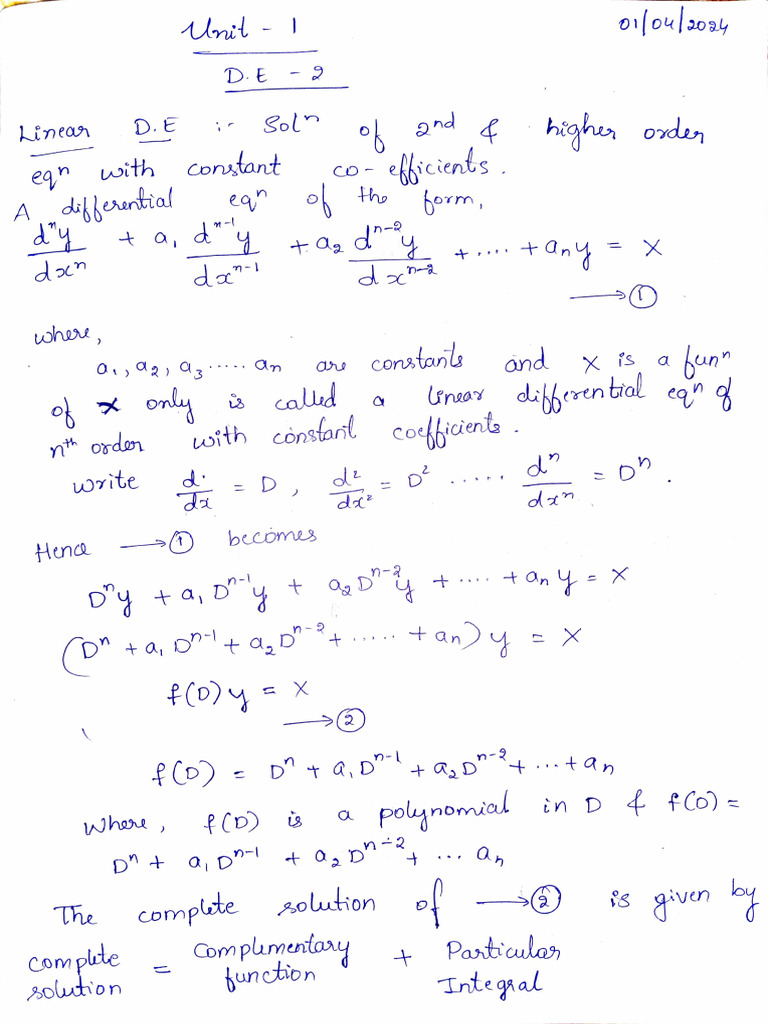 Unit - 1
01/04/2024
D.E - 2
Linear D.E :- Solⁿ of 2nd & higher order
eqⁿ with constant co-efficients.
A differential eqⁿ of the form,
dⁿy/dxⁿ + a₁ dⁿ⁻¹y/dxⁿ⁻¹ + a₂ dⁿ⁻²y/dxⁿ⁻² + ..... + aₙy = X
⟶ ①
where,
a₁, a₂, a₃ ..... aₙ are constants and X is a funⁿ
of x only is called a linear differential eqⁿ of
nᵗʰ order with constant coefficients.
write d/dx = D, d²/dx² = D² ..... dⁿ/dxⁿ = Dⁿ.
Hence ⟶ ① becomes
Dⁿy + a₁Dⁿ⁻¹y + a₂Dⁿ⁻²y + .... + aₙy = X
(Dⁿ + a₁Dⁿ⁻¹ + a₂Dⁿ⁻² + ..... + aₙ)y = X
f(D)y = X
⟶ ②
f(D) = Dⁿ + a₁Dⁿ⁻¹ + a₂Dⁿ⁻² + ... + aₙ
Where, f(D) is a polynomial in D & f(D) =
Dⁿ + a₁Dⁿ⁻¹ + a₂Dⁿ⁻² + ... aₙ
The complete solution of ⟶ ② is given by
complete solution = Complimentary function + Particular Integral